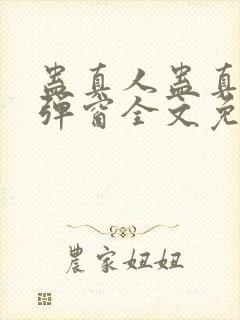 蛊真人蛊真
弹窗全文免
農家妞妞